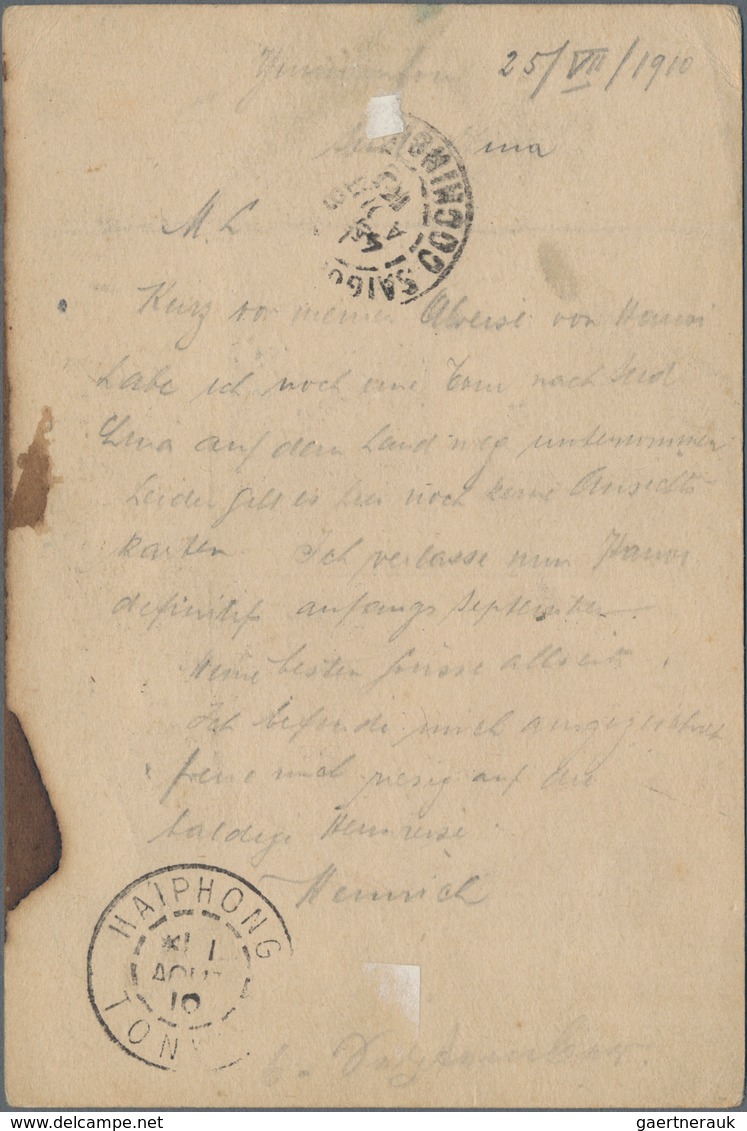 25/VII/1910
M. L.
COCHINCHINE
SAIGON
Kurz vor meiner Abreise von Hanoi
habe ich noch eine Tour nach Süd
China auf dem Landweg unternommen
Leider gibt es hier noch keine Ansichts
karten. Ich verlasse nun Hanoi
definitif anfangs September.
Meine besten Grüsse allseits.
Ich befinde mich ausgezeichnet
freue mich riesig auf die
baldige Heimreise.
Heinrich
HAIPHONG
1
AOUT
10
TONKIN
gaertnerauk